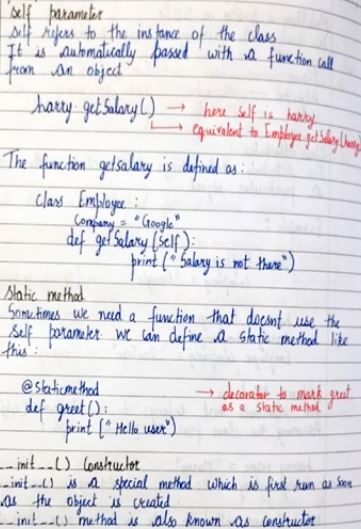 self parameter
self refers to the instance of the class
It is automatically passed with a function call
from an object
harry.getSalary() → here self is harry
→ equivalent to Employee.getSalary(harry)
The function getsalary is defined as:
class Employee:
company = "Google"
def getSalary(self):
print("Salary is not there")
Static method
Sometimes we need a function that doesnt use the
self parameter we can define a static method like
this:
@staticmethod → decorator to mark greet
def greet(): as a static method
print("Hello user")
__init__() Constructor
__init__() is a special method which is first run as soon
as the object is created
__init__() method is also known as constructor